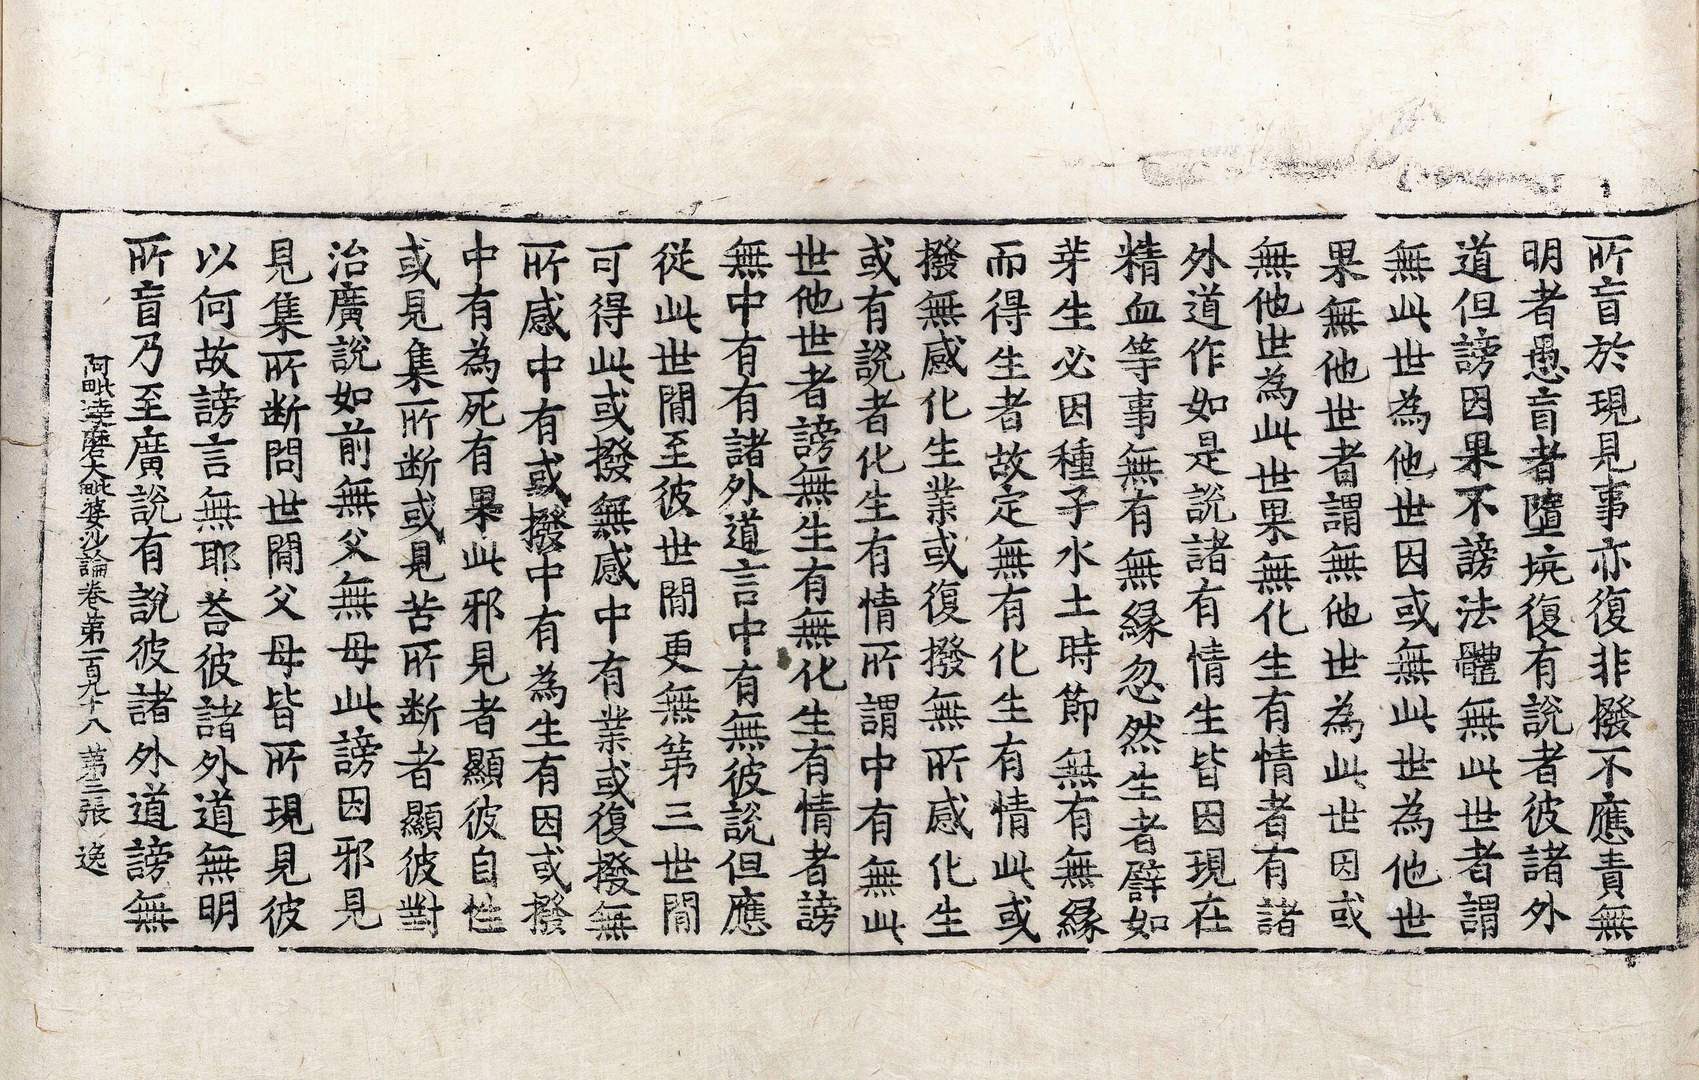 所盲於現見事亦復非撥不應責無
明者愚盲者墮坑復有說者彼諸外
道但謗因果不謗法體無此世者謂
無此世為他世因或無此世為他世
果無他世者謂無他世為此世因或
無他世為此世果無化生有情者有諸
外道作如是說諸有情生皆因現在
精血等事無有無緣忽然生者譬如
芽生必因種子水土時節無有無緣
而得生者故定無有化生有情此或
撥無感化生業或復撥無所感化生
或有說者化生有情所謂中有無此
世他世者謗無生有無化生有情者謗
無中有有諸外道言中有無彼說但應
從此世間至彼世間更無第三世間
可得此或撥無感中有業或復撥無
所感中有或撥中有為生有因或撥
中有為死有果此邪見者顯彼自性
或見集所斷或見苦所斷者顯彼對
治廣說如前無父無母此謗因邪見
見集所斷問世間父母皆所現見彼
以何故謗言無耶荅彼諸外道無明
所盲乃至廣說有說彼諸外道謗無
阿毗達磨大毗婆沙論卷第一百九十八 第三張 逸